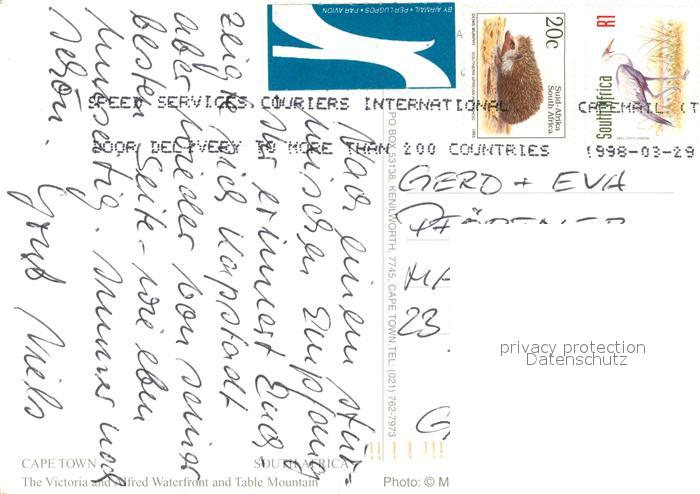 BY AIRMAIL • PER LUGPOS • PAR AVION
20c
Suid-Afrika
South Africa
R1
South Africa
SPEED SERVICES COURIERS INTERNATIONAL
DOOR DELIVERY TO MORE THAN 200 COUNTRIES
CAPEMAIL (T
1998-03-29
Nach einem stür=
mischen Empfang
Ihr erinnert Euch
zeigte sich Kapstadt
aber wieder von seiner
besten Seite - wie eben
immer noch
schön.
Gruß Niels
GERD + EVA
MA
23
G
PO BOX 53138, KENILWORTH, 7745, CAPE TOWN. TEL: (021) 762-7973
CAPE TOWN
SOUTH AFRICA
The Victoria and Alfred Waterfront and Table Mountain
Photo: © M
privacy protection
Datenschutz